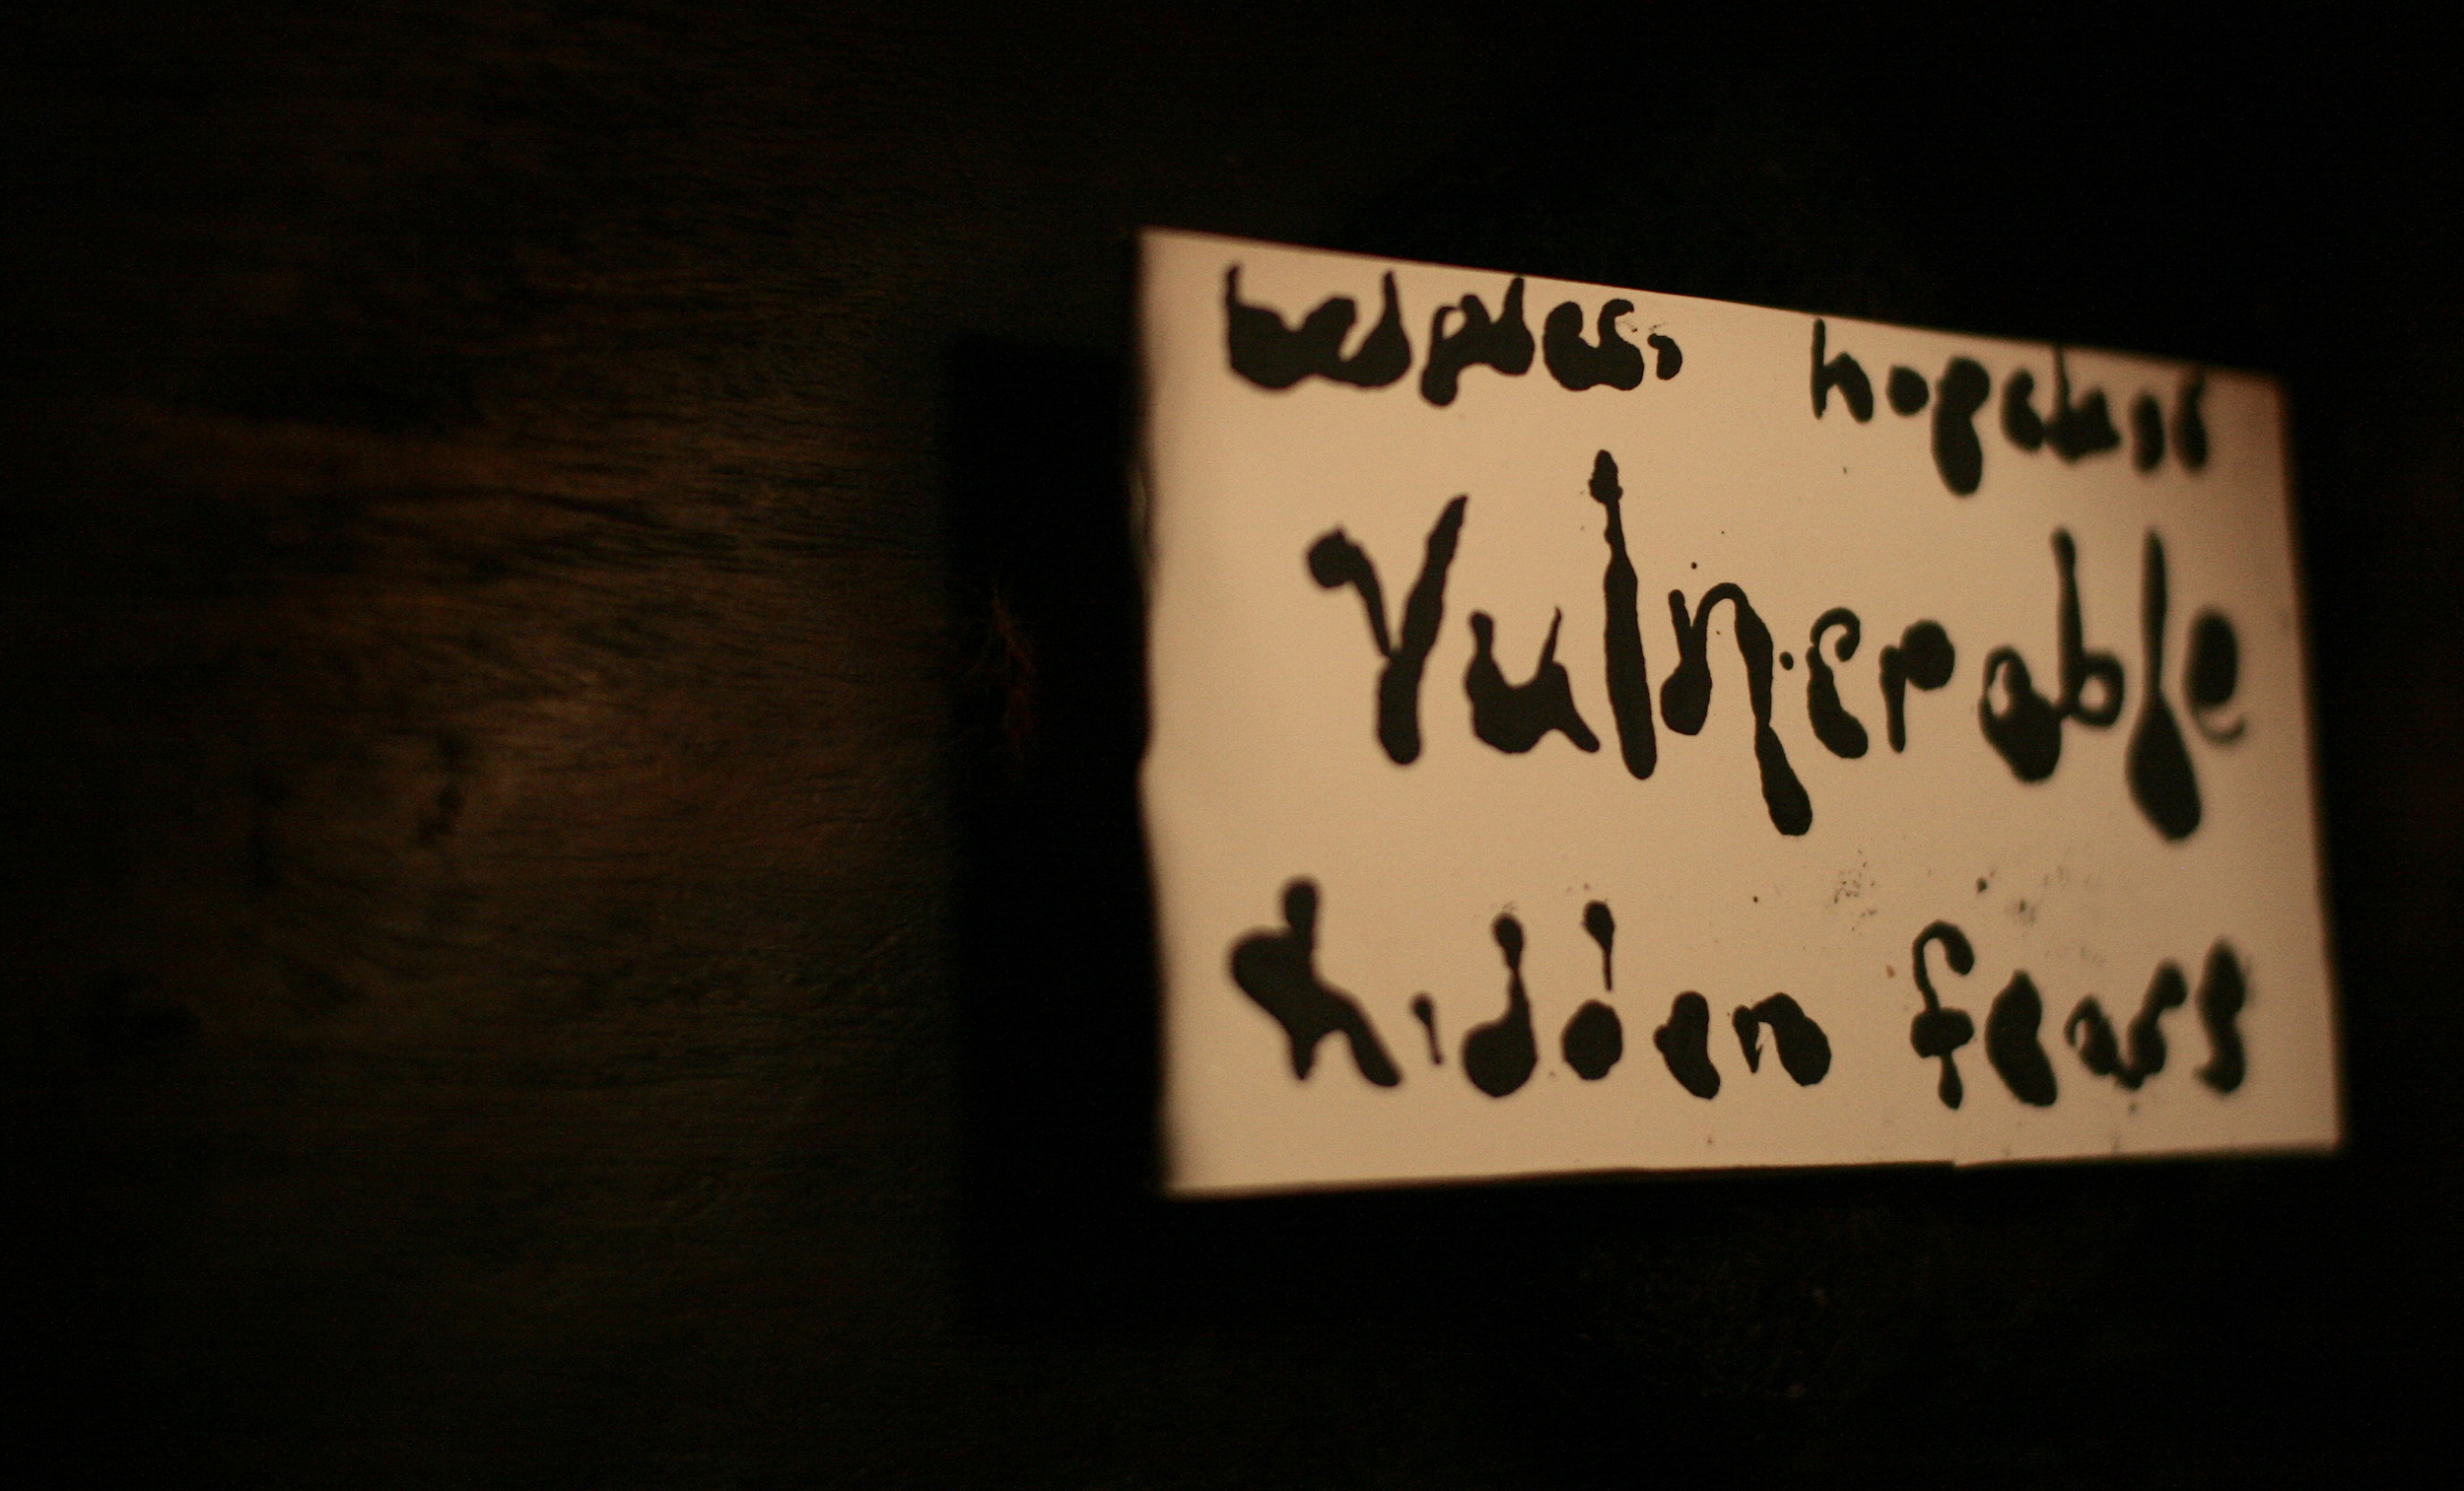 helpless hopeless
Vulnerable
hidden fears